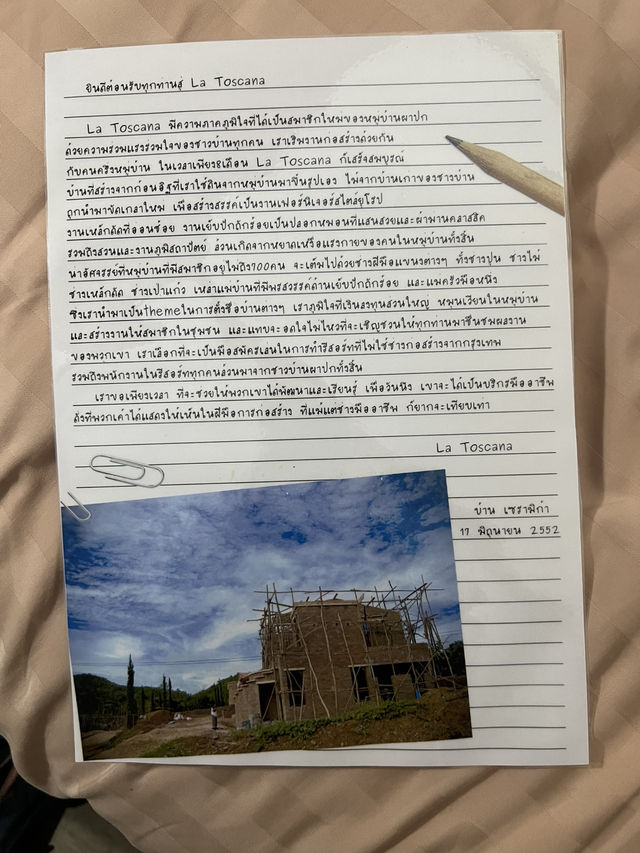 ยินดีต้อนรับทุกท่านสู่ La Toscana
La Toscana มีความภาคภูมิใจที่ได้เป็นสมาชิกใหม่ของหมู่บ้านผาปก
ด้วยความร่วมแรงร่วมใจของชาวบ้านทุกคน เราเริ่มงานก่อสร้างด้วยกัน
กับคนครึ่งหมู่บ้าน ในเวลาเพียง8เดือน La Toscana ก็เสร็จสมบูรณ์
บ้านที่สร้างจากก้อนอิฐที่เราใช้ดินจากหมู่บ้านมาขึ้นรูปเอง ไม้จากบ้านเก่าของชาวบ้าน
ถูกนำมาขัดเกลาใหม่ เพื่อสร้างสรรค์เป็นงานเฟอร์นิเจอร์สไตล์ยุโรป
งานเหล็กดัดที่อ่อนช้อย งานเย็บปักถักร้อยเป็นปลอกหมอนที่แสนสวยและผ้าม่านคลาสิค
รวมถึงสวนและงานภูมิสถาปัตย์ ล้วนเกิดจากหยาดเหงื่อแรงกายของคนในหมู่บ้านทั้งสิ้น
น่าอัศจรรย์ที่หมู่บ้านที่มีสมาชิกอยู่ไม่ถึง700คน จะเต็มไปด้วยช่างฝีมือแขนงต่างๆ ทั้งช่างปูน ช่างไม้
ช่างเหล็กดัด ช่างเป่าแก้ว เหล่าแม่บ้านที่มีพรสวรรค์ด้านเย็บปักถักร้อย และแม่ครัวมือหนึ่ง
ซึ่งเรานำมาเป็นthemeในการตั้งชื่อบ้านต่างๆ เราภูมิใจที่เงินลงทุนส่วนใหญ่ หมุนเวียนในหมู่บ้าน
และสร้างงานให้สมาชิกในชุมชน และแทบจะอดใจไม่ไหวที่จะเชิญชวนให้ทุกท่านมาชื่นชมผลงาน
ของพวกเขา เราเลือกที่จะเป็นมือสมัครเล่นในการทำรีสอร์ทที่ไม่ใช้ช่างก่อสร้างจากกรุงเทพ
รวมถึงพนักงานในรีสอร์ททุกคนล้วนมาจากชาวบ้านผาปกทั้งสิ้น
เราขอเพียงเวลา ที่จะช่วยให้พวกเขาได้พัฒนาและเรียนรู้ เพื่อวันหนึ่ง เขาจะได้เป็นบริกรมืออาชีพ
ดังที่พวกเค้าได้แสดงให้เห็นในฝีมือการก่อสร้าง ที่แม้แต่ช่างมืออาชีพ ก็ยากจะเทียบเท่า
La Toscana
บ้าน เซรามิก้า
17 มิถุนายน 2552